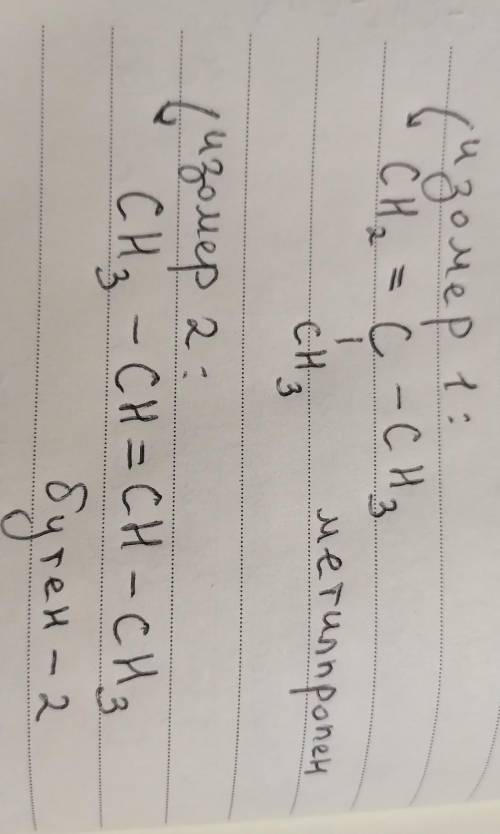 изомер 1:
CH₂ = C - CH₃
|
CH₃
метилпропен
изомер 2:
CH₃ - CH = CH - CH₃
бутен - 2